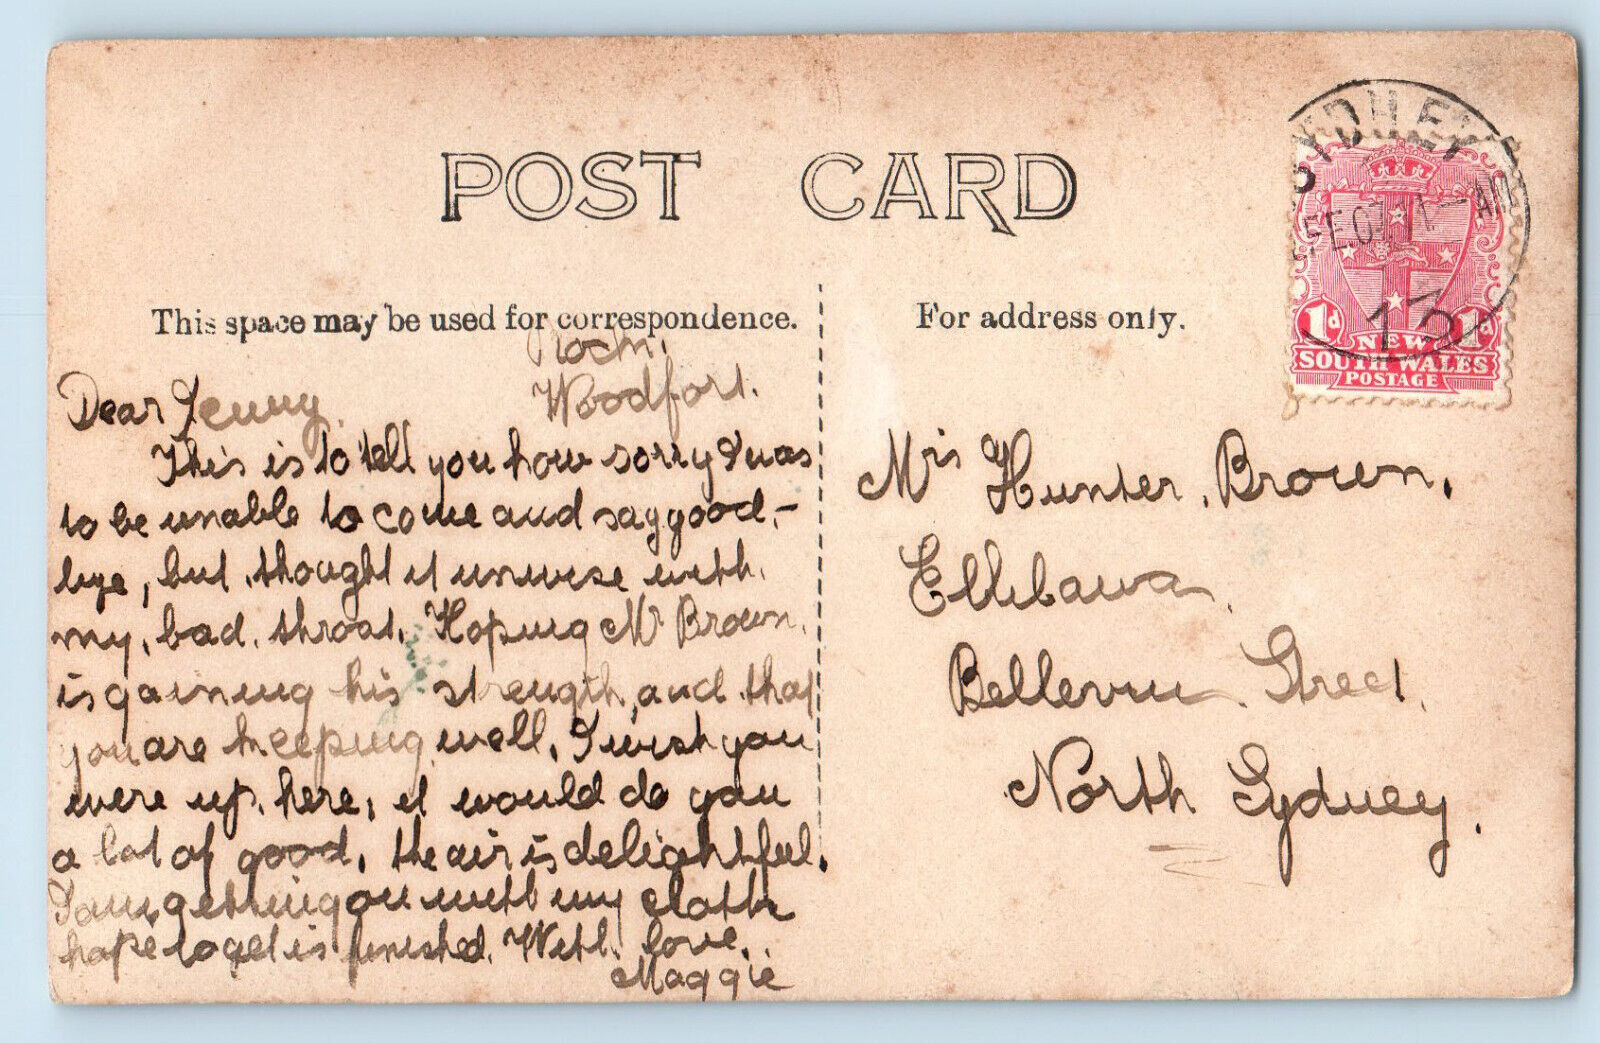 POST CARD
This space may be used for correspondence.
For address only.
SYDNEY
FE 07 11-AM
13
1d 1d
NEW
SOUTH WALES
POSTAGE
Woodfort.
Dear Jenny.
This is to tell you how sorry I was
to be unable to come and say good-
bye, but thought it unwise with
my bad throat. Hoping Mr Brown
is gaining his strength, and that
you are keeping well. I wish you
were up here, it would do you
a lot of good. the air is delightful.
I am getting on with my cloth
hope to get is finished. With love.
Maggie
Mrs Hunter Brown.
Bellevue Street.
North Sydney.